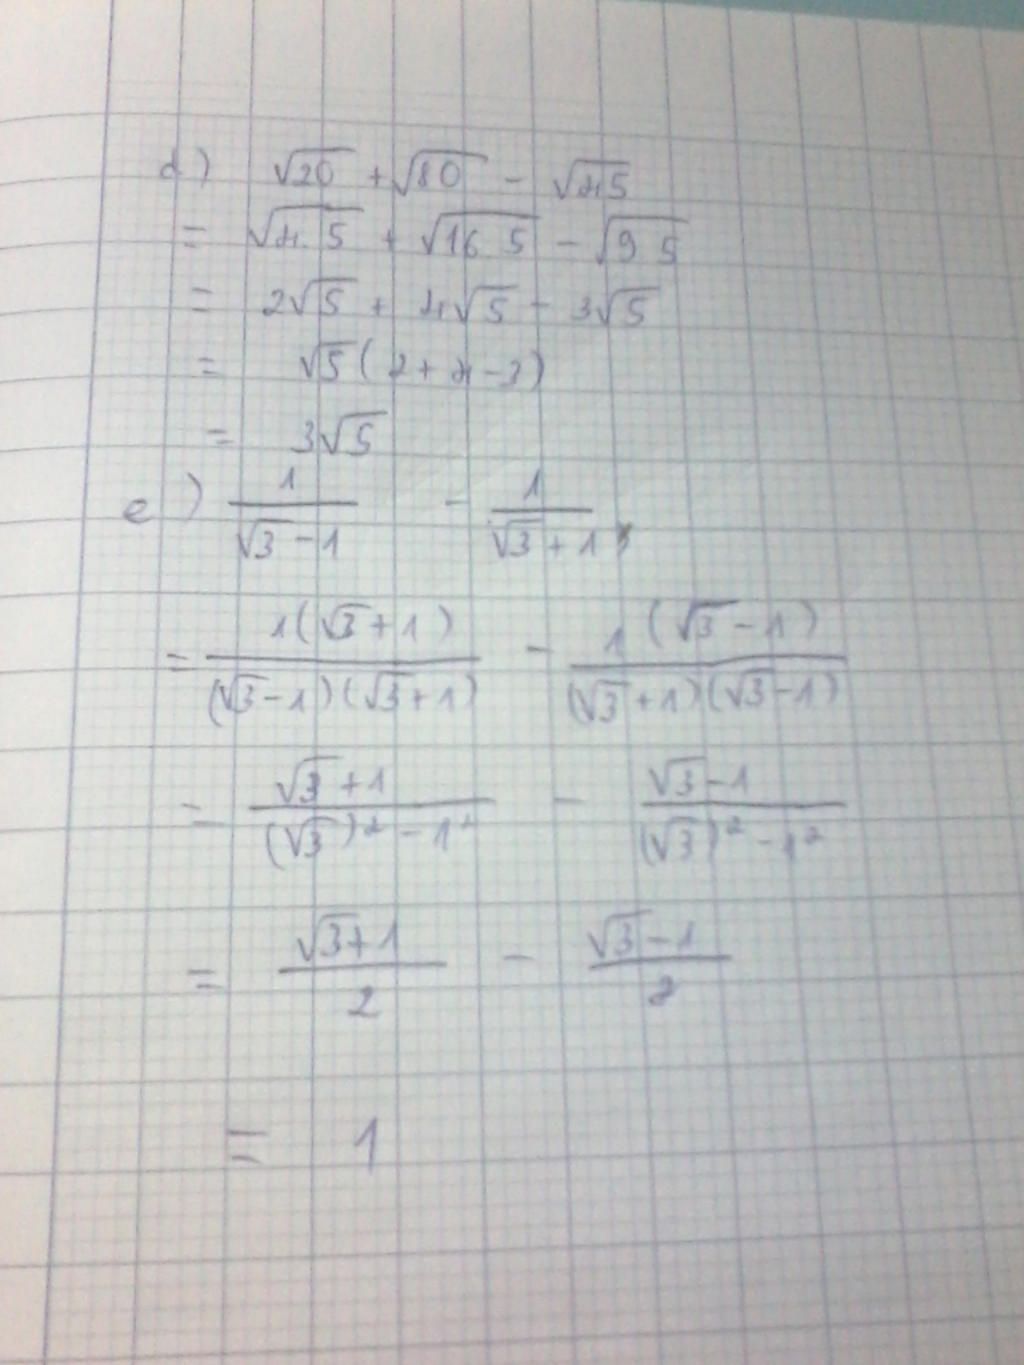 d) √20 + √80 - √45
= √4.5 + √16.5 - √9.5
= 2√5 + 4√5 - 3√5
= √5(2+4-3)
= 3√5
e) 1/(√3-1) - 1/(√3+1)
= 1(√3+1)/((√3-1)(√3+1)) - 1(√3-1)/((√3+1)(√3-1))
= (√3+1)/((√3)²-1²) - (√3-1)/((√3)²-1²)
= (√3+1)/2 - (√3-1)/2
= 1